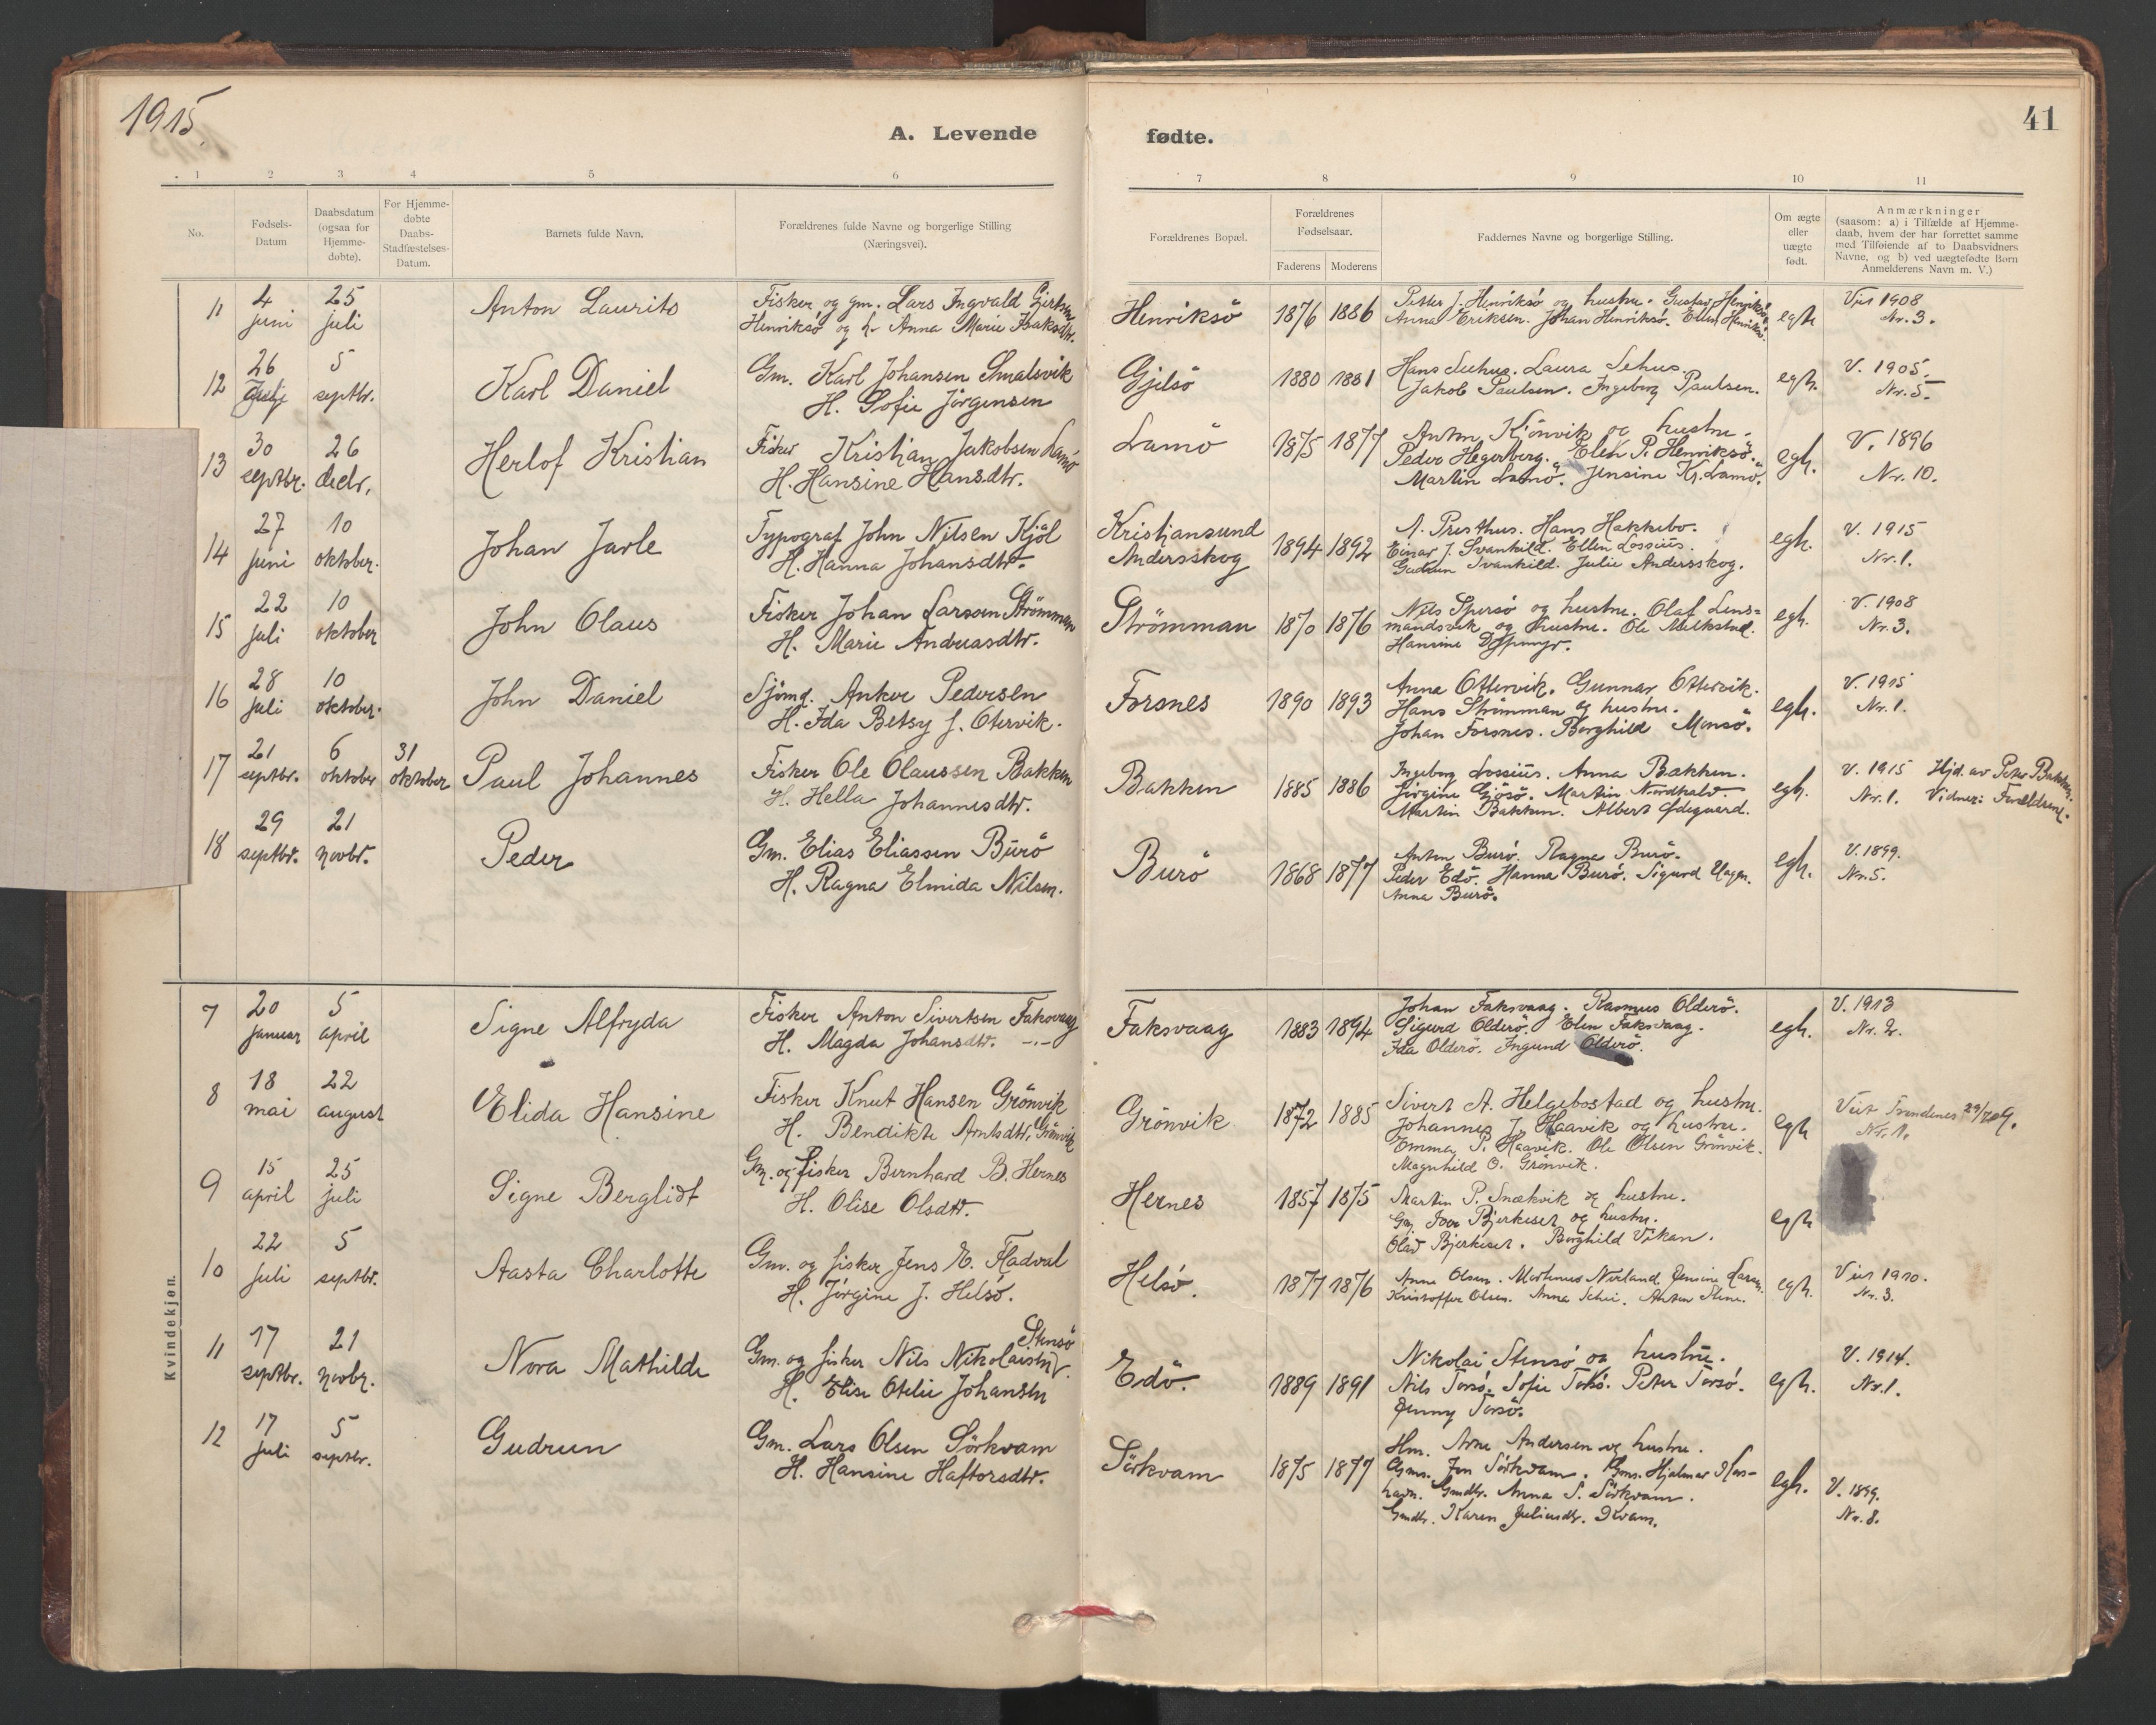 1915
A. Levende fødte.
41
1 2 3 4 5 6 7 8 9 10 11
No.
Fødsels-
Datum
Daabsdatum
(ogsaa for
Hjemme-
døbte).
For Hjemme-
døbte
Daabs-
Stadfæstelses-
Datum.
Barnets fulde Navn.
Forældrenes fulde Navne og borgerlige Stilling
(Næringsvei).
Forældrenes Bopæl.
Forældrenes
Fødselsaar.
Faderens Moderens
Faddernes Navne og borgerlige Stilling.
Om ægte
eller
uægte
født.
Anmærkninger
(saasom: a) i Tilfælde af Hjemme-
daab, hvem der har forrettet samme
med Tilføiende af to Daabsvidners
Navne, og b) ved uægtefødte Børn
Anmelderens Navn m. V.)
11
4
juni
25
juli
Anton Laurits
Fisker og gm. Lars Ingvald
Henriksö og h. Anna Marie Isaksdtr.
Henriksö
1876 1886
Petter J. Henriksö og hustru. Gustav Henriksö.
Anna Eriksen. Johan Henriksö. Ellen Henriksö.
egte
Viet 1908
Nr. 3.
12
26
Juli
5
septbr.
Karl Daniel
Gm. Karl Johansen Smalsvik
H. Sofie Jörgensen
Gjelsö
1880 1881
Hans Seehus. Laura Sehus
Jakob Paulsen. Ingeborg Paulsen.
egte.
V. 1905.
Nr. 5.
13
30
septbr.
26
decbr.
Herlof Kristian
Fisker Kristian Jakobsen Lamö
H. Hansine Hansdtr.
Lamö
1875 1877
Anton Kjönvik og hustru.
Peder Hegerberg. Elen P. Henriksö.
Martin Lamö. Jensine Kr. Lamö.
egte.
V. 1896
Nr. 10.
14
27
juni
10
oktober.
Johan Jarle
Typograf John Nilsen Kjöl
H. Hanna Johansdtr.
Kristiansund
Andersskog
1894 1892
A. Presthus. Hans Hakkebo.
Einar J. Svanhild. Ellen Lossius.
Gudrun Svanhild. Julie Andersskog.
egte.
V. 1915
Nr. 1.
15
22
juli
10
oktober
John Olaus
Fisker Johan Larssen Strömmen
H. Marie Andreasdtr.
Strömman
1870 1876
Nils Spersö og hustru. Olaf Lens=
mandsvik og hustru. Ole Melkstad.
Hansine
egte.
V. 1908
Nr. 3.
16
28
juli
10
oktober.
John Daniel
Sjömd. Anker Pedersen
H. Ida Betsy J. Otervik.
Forsnes
1890 1893
Anna Ottervik. Gunnar Ottervik.
Hans Strömman og hustru.
Johan Forsnes. Borghild Monsö.
egte.
V. 1915
Nr. 1.
17
21
septbr.
6
oktober
31
oktober
Paul Johannes
Fisker Ole Olaussen Bakken
H. Hella Johannesdtr.
Bakken
1885 1886
Ingeborg Lossius. Anna Bakken.
Jörgine Gjösö. Martin Nordhald.
Martin Bakken. Albert Ødegaard.
egte.
V. 1915 Hjd. av Peter Bakken.
Nr. 1. Vidner: Forældrene.
18
29
septbr.
21
novbr.
Peder
Gm. Elias Eliassen Burö
H. Ragna Elmida Nilsen.
Burö
1868 1877
Anton Burö. Ragna Burö.
Peder Edö. Hanna Burö. Sigurd Hagen.
Anna Burö.
egte.
V. 1899.
Nr. 5.
Kvindekjøn.
7
20
januar
5
april
Signe Alfryda
Fisker Anton Sivertsen Faksvaag
H. Magda Johansdtr. -"-
Faksvaag
1883 1894
Johan Faksvaag. Rasmus Olderö.
Sigurd Olderö. Elen Faksvaag.
Ida Olderö. Ingund Olderö.
egte.
V. 1913
Nr. 2.
8
18
mai
22
august
Elida Hansine
Fisker Knut Hansen Grönvik
H. Bendikte Arntsdtr. Grönvik
Grönvik
1872 1885
Sivert A. Helgebostad og hustru.
Johannes J. Haavik og hustru.
Emma P. Haavik. Ole Olsen Grönvik.
Magnhild O. Grönvik.
egte
Viet Trondenes
Nr. 1.
9
15
april
25
juli
Signe Berglidt
Gm. og fisker Bernhard B. Hernes
H. Olise Olsdtr.
Hernes
1857 1875
Martin P. Snekvik og hustru.
Gm. Iver Bjerkeset og hustru.
Olav Bjerkeset. Borghild Vikan.
egte
10
22
juli
5
septbr.
Aasta Charlotte
Gm. og fisker Jens E. Fladval
H. Jörgine J. Helsö.
Helsö.
1877 1876
Anne Olsen. Martinus Nerland. Jensine Larsen.
Kristoffer Olsen. Anna Schei. Anton Stene.
egte.
Viet 1910.
Nr. 3.
11
17
septbr.
21
novbr.
Nora Mathilde
Gm. og fisker Nils Nikolaisen Stensö
H. Elise Otelie Johansen
Edö.
1889 1891
Nikolai Stensö og hustru.
Nils Torsö. Sofie Torsö. Peter Torsö.
Jenny Torsö.
egte.
V. 1914.
Nr. 1.
12
17
juli
5
septbr.
Gudrun
Gm. Lars Olsen Sörkvam
H. Hansine Haftorsdtr.
Sörkvam
1875 1877
Hm. Arne Andersen og hustru.
Gms. Jon Sörkvam. Gms. Hjalmar Hos-
havn. Gmdtr. Anna S. Sörkvam.
Gmdtr. Karen Juliusdtr. Kvam.
egte.
V. 1899.
Nr. 8.